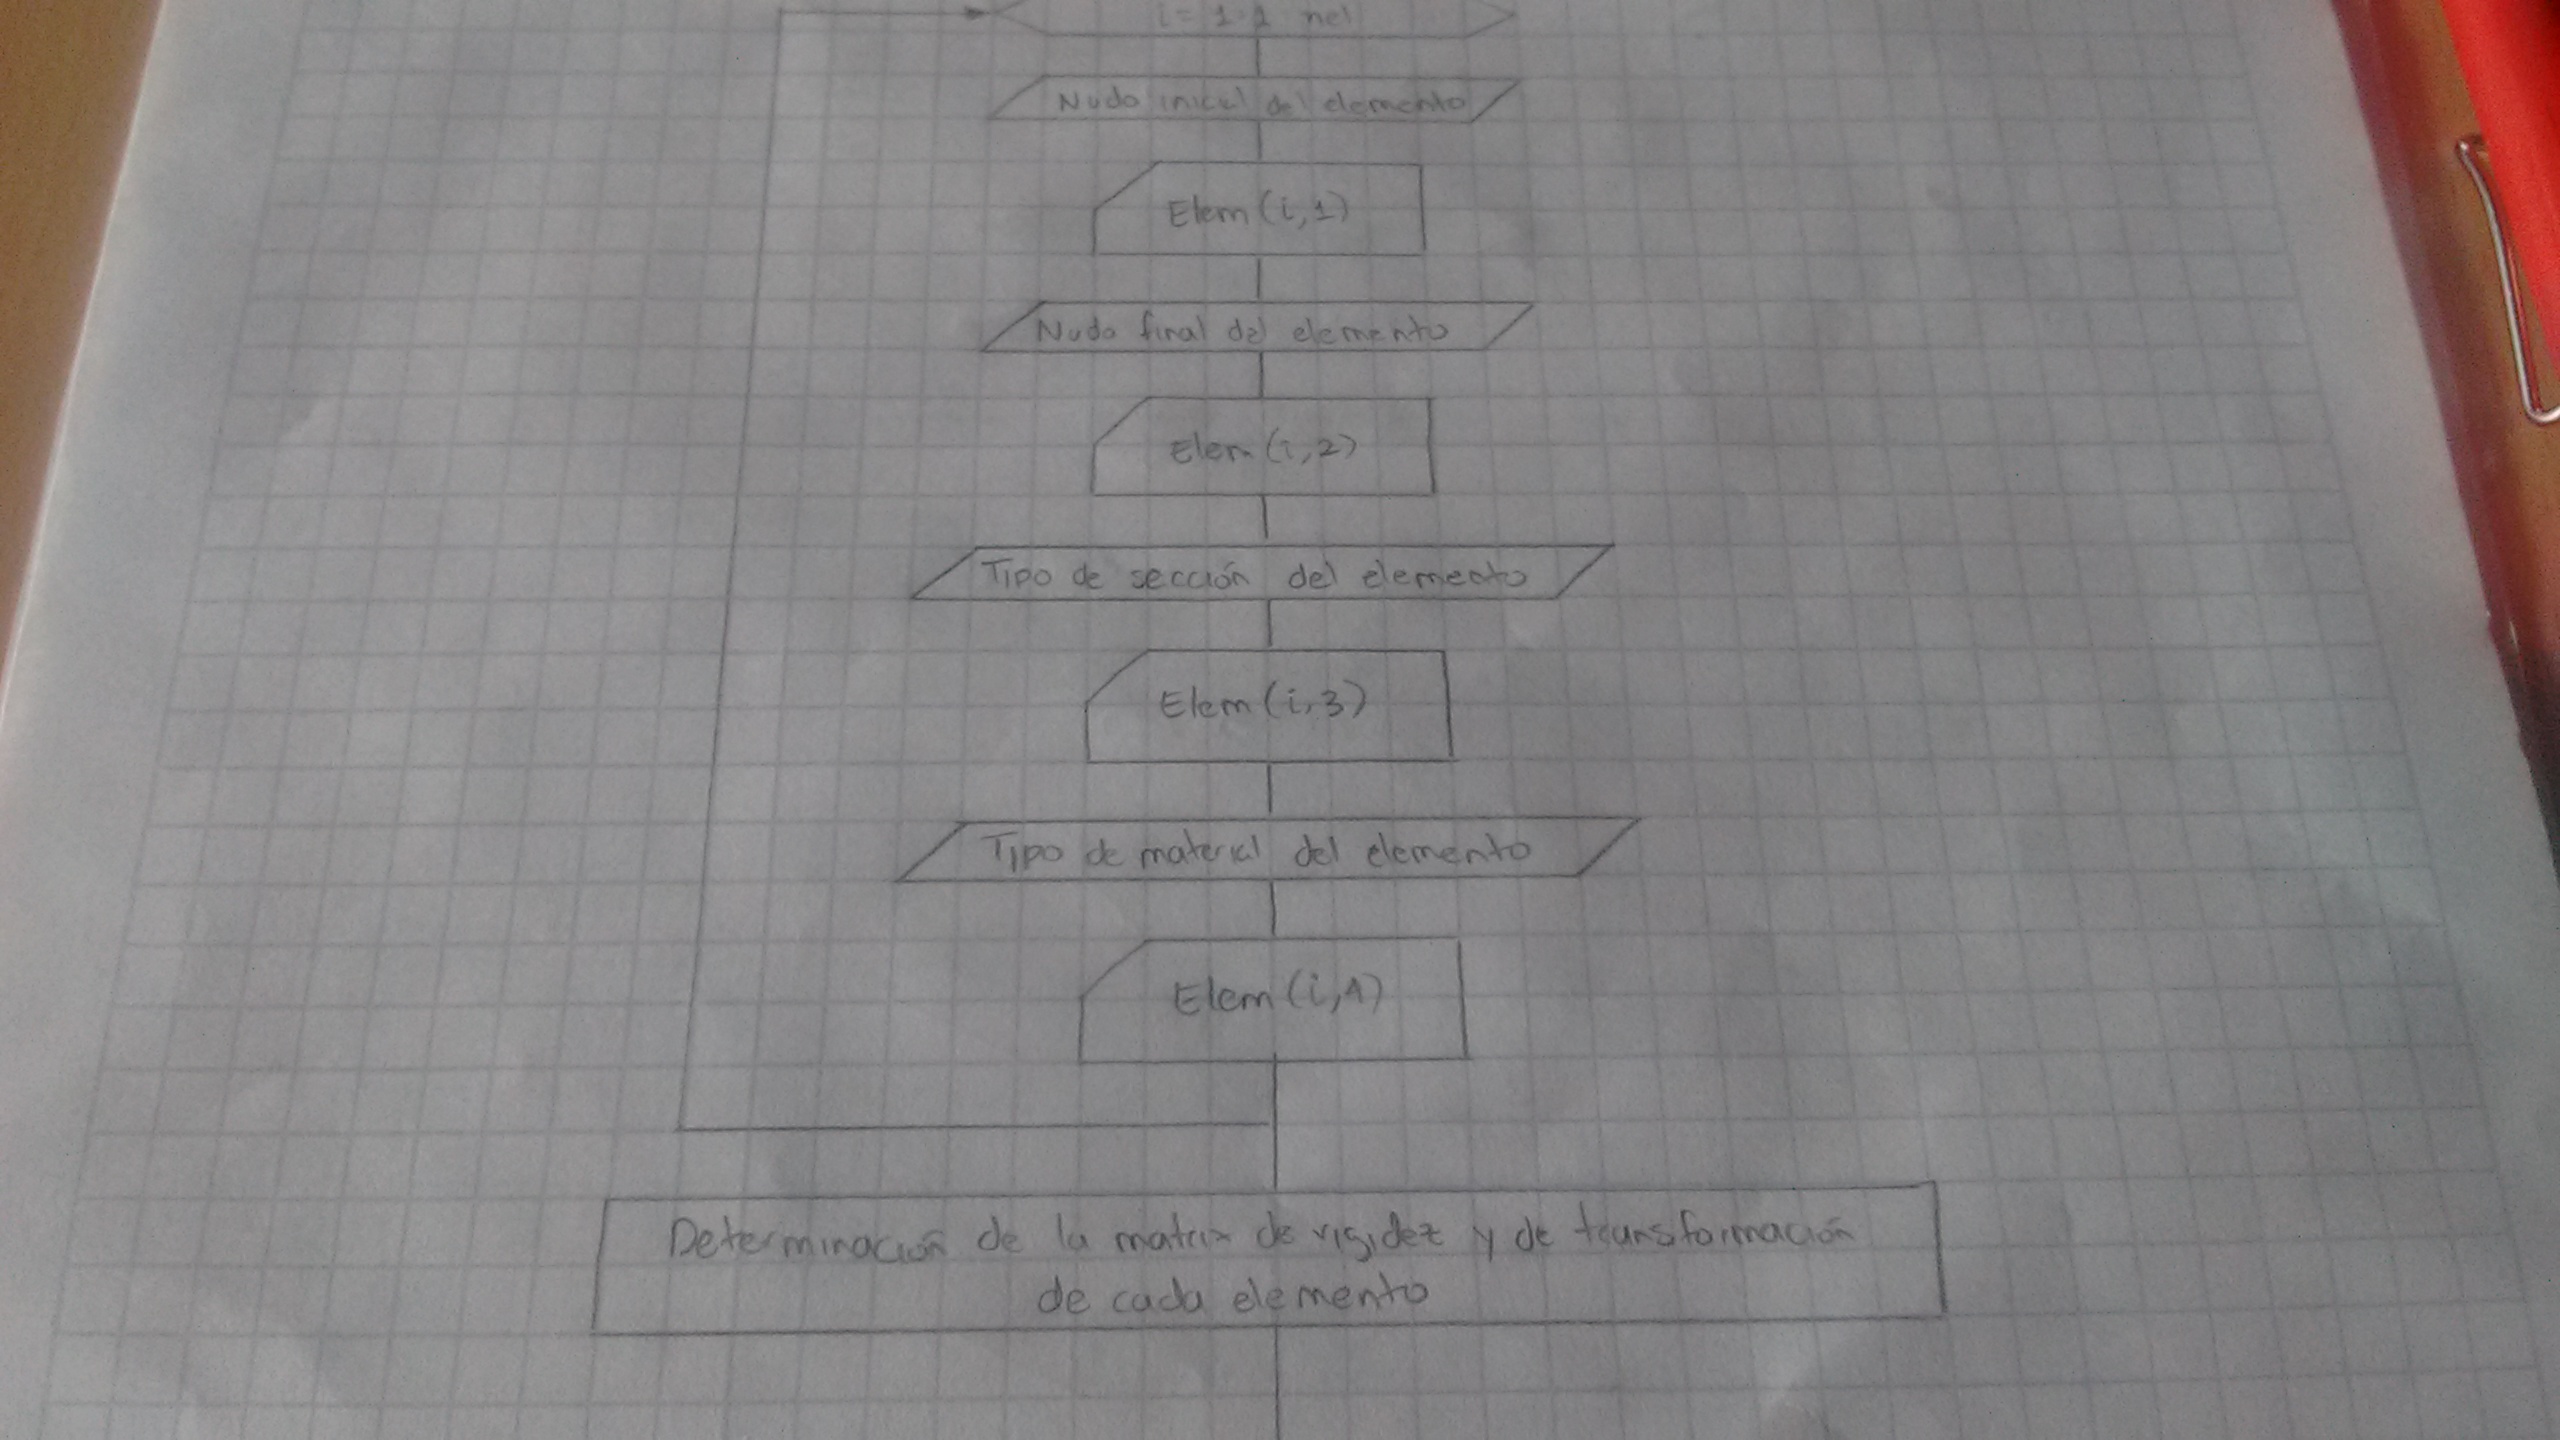 i = 1:1 nel
Nudo inicial del elemento
Elem (i,1)
Nudo final del elemento
Elem (i,2)
Tipo de sección del elemento
Elem (i,3)
Tipo de material del elemento
Elem (i,4)
Determinación de la matrix de rigidez y de transformación
de cada elemento